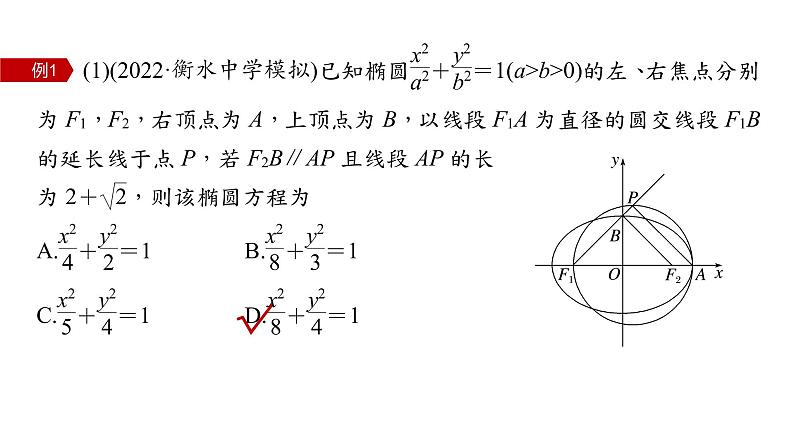 例1 (1)(2022·衡水中学模拟)已知椭圆x²/a²+y²/b²=1(a>b>0)的左、右焦点分别
为 F₁，F₂，右顶点为 A，上顶点为 B，以线段 F₁A 为直径的圆交线段 F₁B
的延长线于点 P，若 F₂B∥AP 且线段 AP 的长
为 2+√2，则该椭圆方程为
A.x²/4+y²/2=1 B.x²/8+y²/3=1
C.x²/5+y²/4=1 D.x²/8+y²/4=1
y
P
B
F₁ O F₂ A x